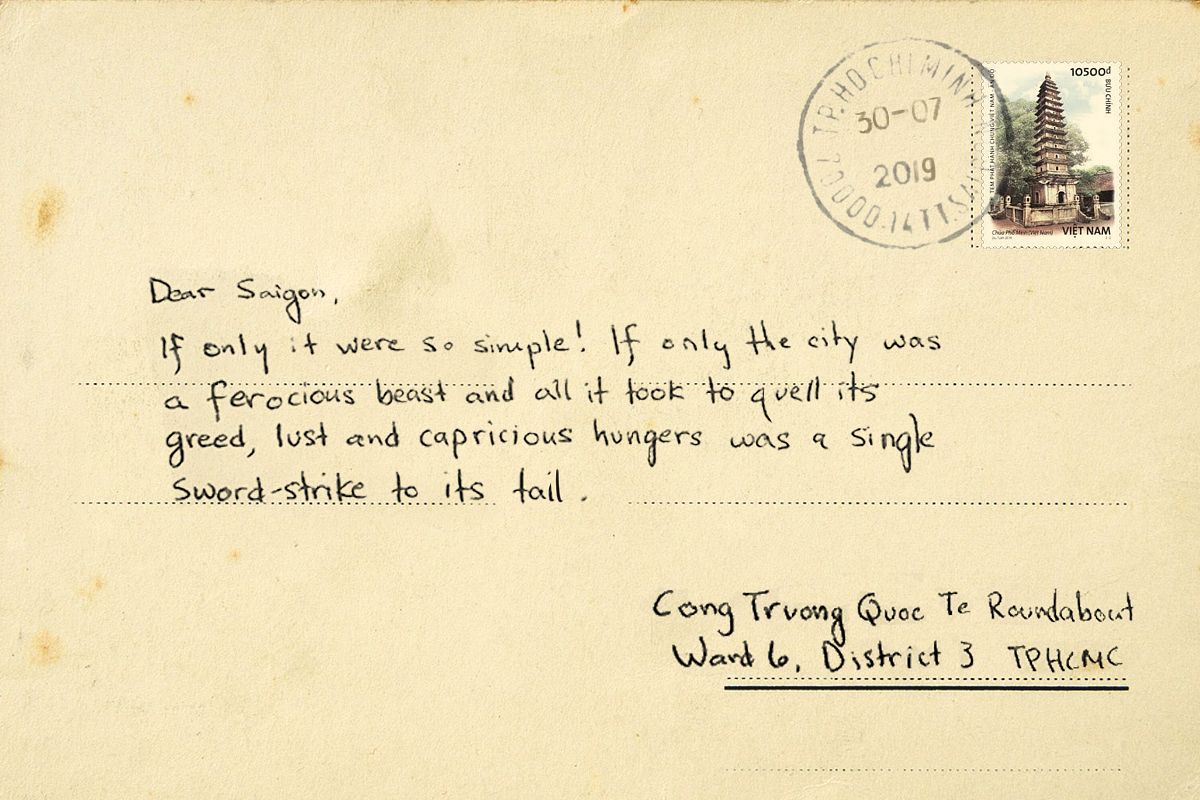 TP.HO CHI MINH
30-07
2019
10500đ
BƯU CHÍNH
TEM PHÁT HÀNH CHUNG VIỆT NAM - ẤN ĐỘ
Chùa Phổ Minh (Việt Nam)
VIỆT NAM
Dear Saigon,
If only it were so simple! If only the city was
a ferocious beast and all it took to quell its
greed, lust and capricious hungers was a single
sword-strike to its tail.
Cong Truong Quoc Te Roundabout
Ward 6, District 3 TPHCMC